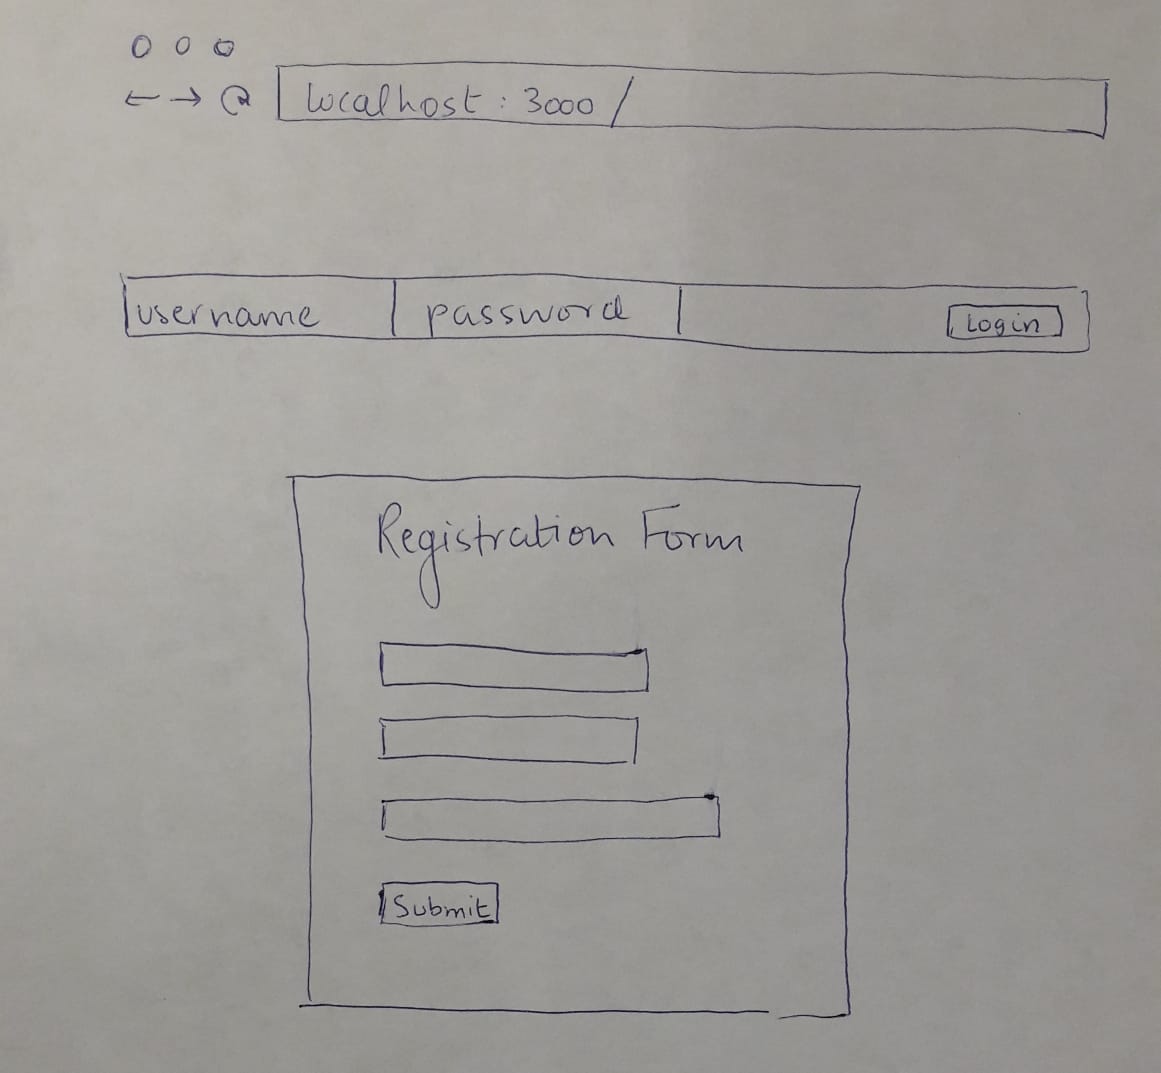 localhost: 3000/
username password Login
Registration Form
Submit